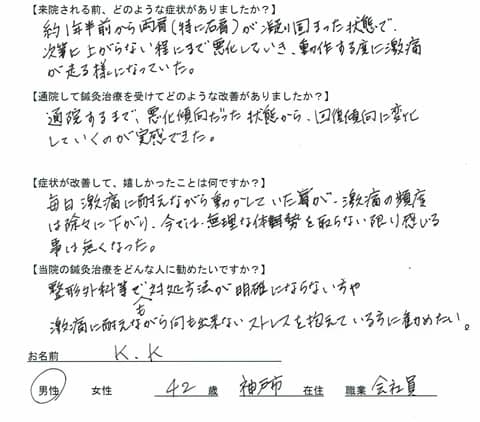 【来院される前、どのような症状がありましたか?】
約1年半前から両肩(特に右肩)が凝り固まった状態で、
次第に上がらない程にまで悪化していき、動作する度に激痛
が走る様になっていた。
【通院して鍼灸治療を受けてどのような改善がありましたか?】
通院するまで、悪化傾向だった状態から、回復傾向に変化
していくのが実感できた。
【症状が改善して、嬉しかったことは何ですか?】
毎日激痛に耐えながら動かしていた肩が、激痛の頻度
は除々に下がり、今では、無理な体勢を取らない限り感じる
事は無くなった。
【当院の鍼灸治療をどんな人に勧めたいですか?】
整形外科等でも対処方法が明確にならない方や
激痛に耐えながら何も出来ないストレスを抱えている方に勧めたい。
お名前 K.K
男性 女性 42 歳 神戸市 在住 職業 会社員